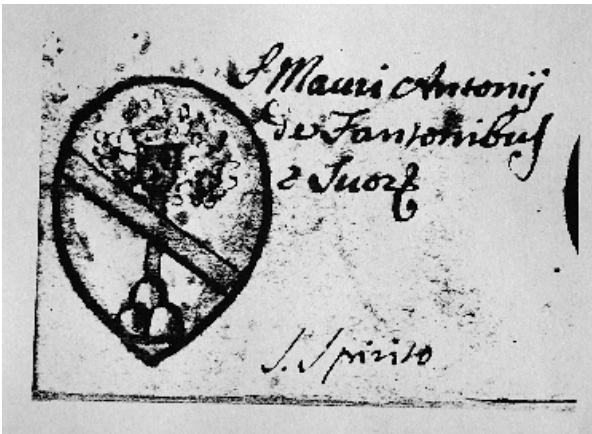 S. Mauri Antonij
de Fantonibus
e Suorȝ
S. Spirito